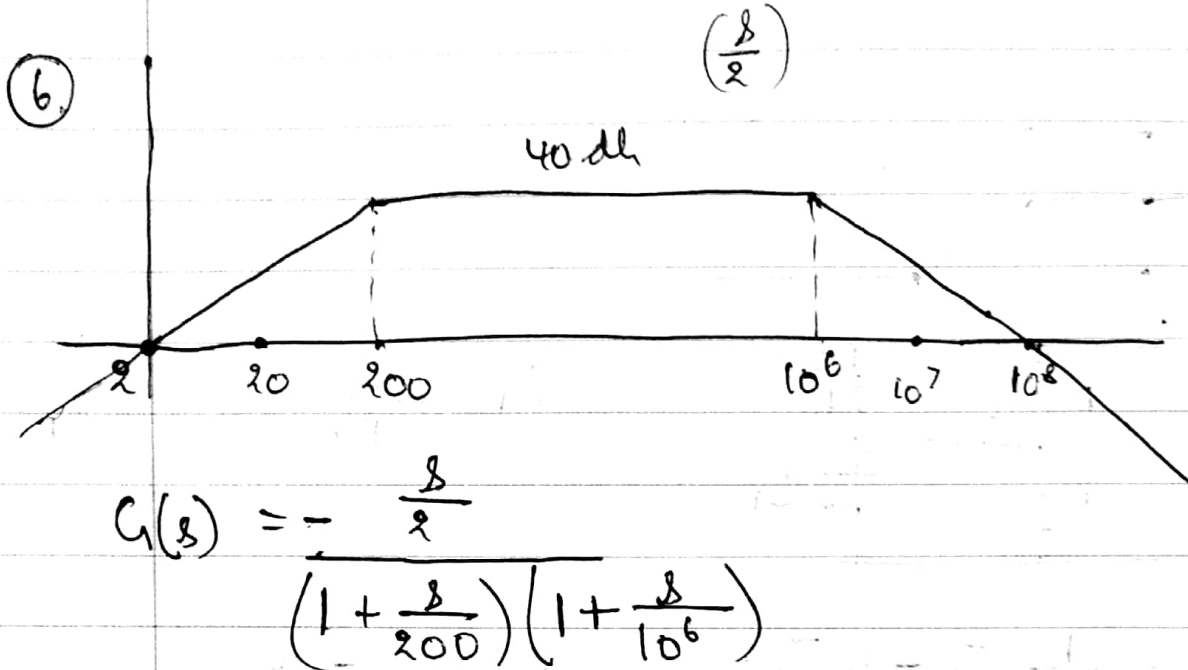 (s/2)
6.
40 db
2 20 200 10^6 10^7 10^8
G(s) = - (s/2) / ((1 + s/200)(1 + s/10^6))